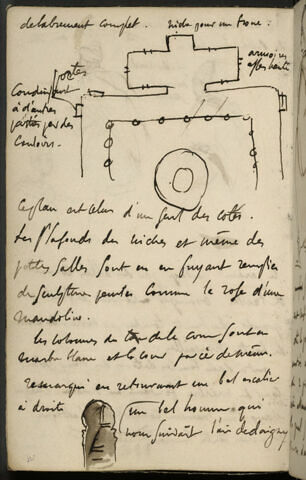 delabrement complet. niche pour un trone :
armoires
assez haute
portes
Conduisant
à d'autres
parties par des
Couloirs.
Ce plan est celui d'un seul des cotés.
Les plafonds des niches et même des
petites salles sont en en fuyant remplies
de sculptures peintes comme la rose d'une
mandoline.
les colonnes de la cour sont en
marbre blanc et la cour pavée de même.
remarqué en retournant un bel escalier
à droite
un bel homme qui
nous suivait l'air dedaigneux